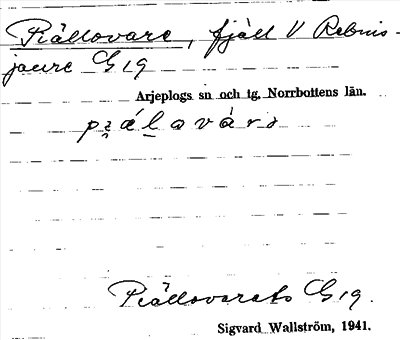 Piällovare, fjäll V Rebnis-
jaure G 19
Arjeplogs sn och tg, Norrbottens län.
Piällovarats G 19.
Sigvard Wallström, 1941.